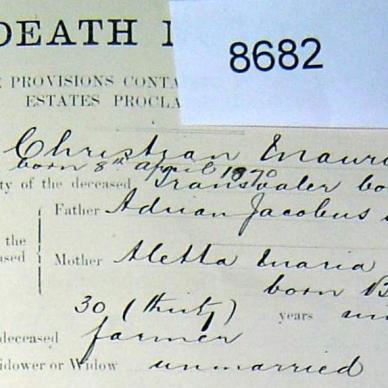 DEATH
8682
PROVISIONS CONTA
ESTATES PROCLA
Christian Mauri
born 8th April 1870
ty of the deceased Transvaler bo
Father Adrian Jacobus
the
ased Mother Aletta Maria
born B
30 (thirty) years un
deceased farmer
idower or Widow unmarried